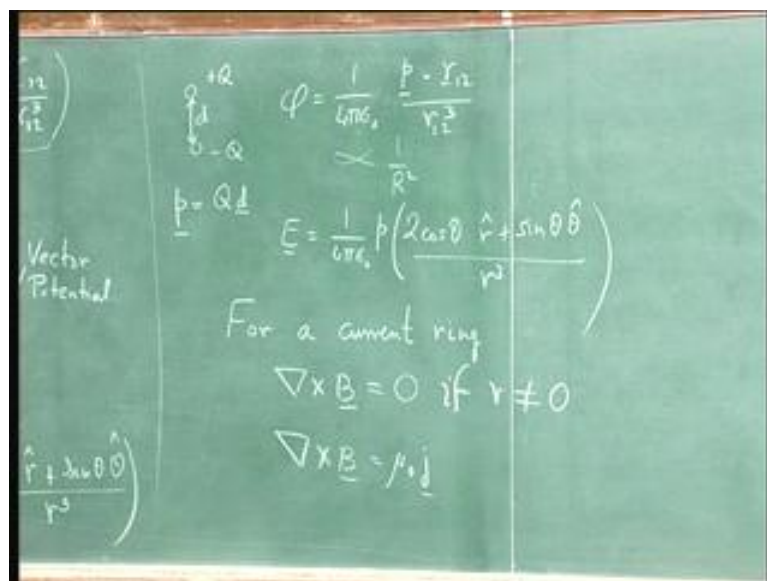 r̂₁₂ / r₁₂³ )
Vector
Potential
r̂ + sinθ θ̂ ) / r³
+Q
d
-Q
p = Qd
φ = 1/4πε₀ p · r₁₂ / r₁₂³
∝ 1/R²
E = 1/4πε₀ p ( 2cosθ r̂ + sinθ θ̂ / r³ )
For a current ring
∇ × B = 0 if r ≠ 0
∇ × B = μ₀ j